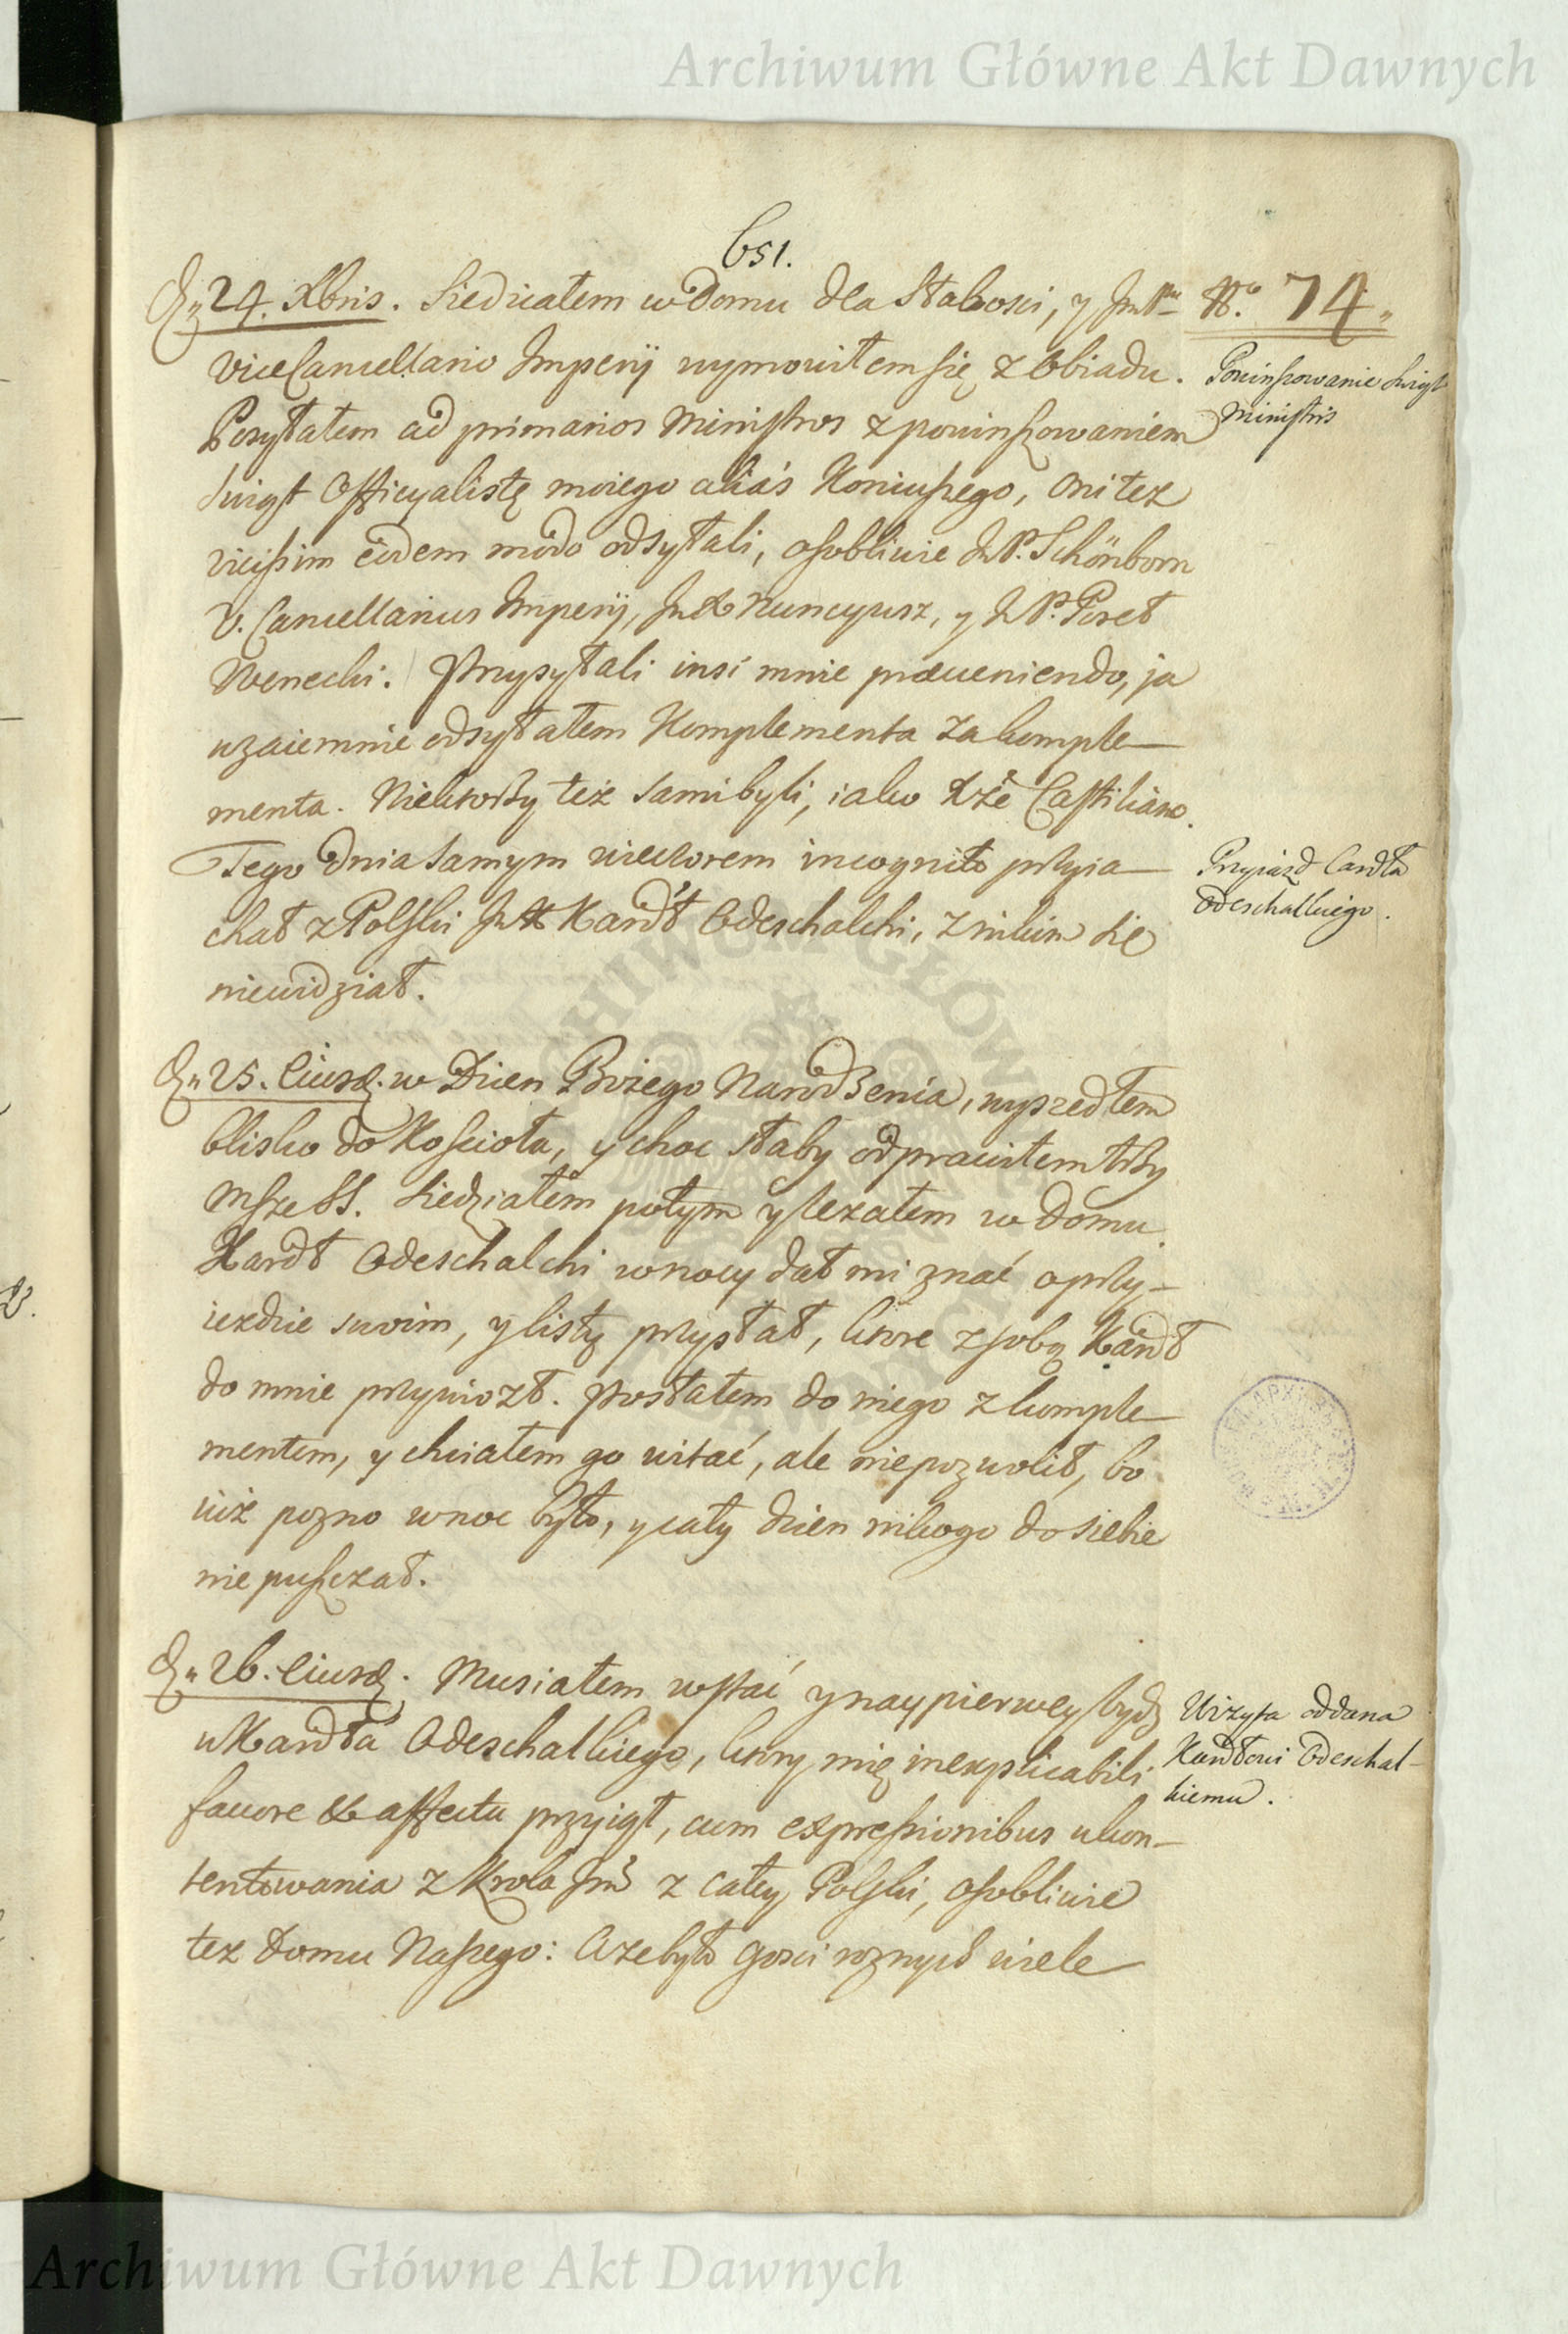 Archiwum Główne Akt Dawnych
651.
D. 24. Xbris. Siedziałem w Domu dla Słabosci, y
ViceCancellario Imperij wymowiłem się z Obiadu.
Posyłałem ad primarios Ministros z powinszowaniem
Swiąt Officyalistę moiego aliás Koniuszego, oni tez
vicissim eodem modo odsyłali, osobliwie JP. Schönborn
V. Cancellarius Imperij, JX Nuncyusz, y JP. Poseł
Wenecki. Przysyłali insi mnie praeueniendo, ja
wzaiemnie odsyłałem Komplementa za komple-
menta. Niektorzy też sami byli, iako Xże Castiliáno.
Tego Dnia samym wieczorem incognito przyia-
chał z Polski JX Kardł Odeschalchi, z nikim sie
niewidział.
D. 25. Eiusd. w Dzien Bożego Narodzenia, wyszedłem
blisko do Kościoła, y choc słaby odprawiłem trzy
Msze SS. Siedziałem potym y lezałem w domu.
Kardł Odeschalchi w nocy dał mi znać o przy-
iezdzie swoim, y listy przysłał, ktore z sobą Kardł
do mnie przywiozł. Posłałem do niego z komple-
mentem, y chciałem go witać, ale niepozwolił, bo
iuż pozno w noc było, y cały dzien nikogo do siebie
nie puszczał.
D. 26. Eiusd. Musiałem wstać y naypierwey bydz
u Kardła Odeschalkiego, ktory mię inexplicabili
fauore & affectu przyiął, cum expressionibus ukon-
tentowania z Krola Jmci z całey Polski, osobliwie
tez Domu Naszego: A ze było gosci roznych wiele
No. 74
Powinszowanie Swiąt
Ministris
Przyiazd Cardła
Odeschalkiego.
Wizyta oddana
Kardłowi Odeschal-
kiemu.
Archiwum Główne Akt Dawnych